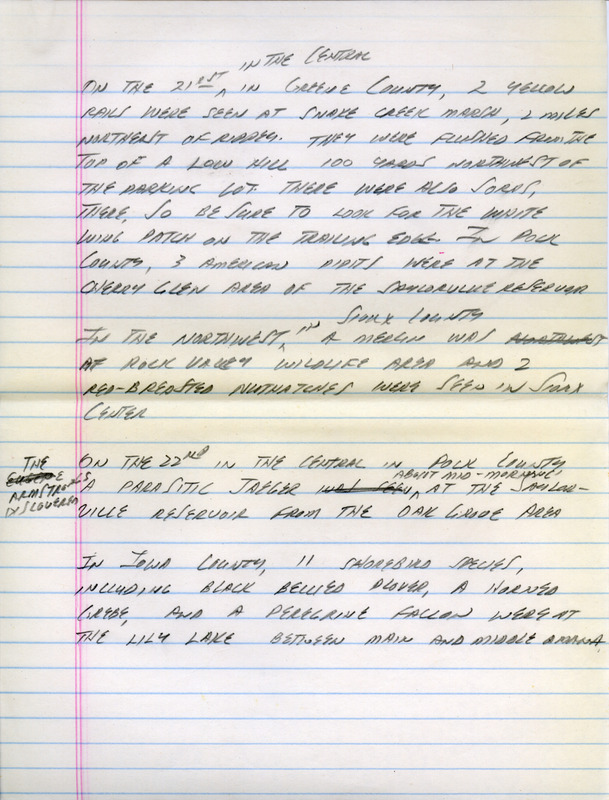 IN THE CENTRAL
ON THE 21ST ^ IN GREENE COUNTY, 2 YELLOW
RAILS WERE SEEN AT SNAKE CREEK MARSH, 2 MILES
NORTHEAST OF RIPPEY. THEY WERE FLUSHED FROM THE
TOP OF A LOW HILL 100 YARDS NORTHWEST OF
THE PARKING LOT. THERE WERE ALSO SORAS,
THERE, SO BE SURE TO LOOK FOR THE WHITE
WING PATCH ON THE TRAILING EDGE. IN POLK
COUNTY, 3 AMERICAN PIPITS WERE AT THE
CHERRY GLEN AREA OF THE SAYLORVILLE RESERVOIR
SIOUX COUNTY
IN THE NORTHWEST, ^ IN A MERLIN WAS
AT ROCK VALLEY WILDLIFE AREA AND 2
RED-BREASTED NUTHATCHES WERE SEEN IN SIOUX
CENTER
THE
ARMSTRONGS
DISCOVERED
ON THE 22ND IN THE CENTRAL IN POLK COUNTY
ABOUT MID-MORNING,
A PARASITIC JAEGER WAS SEEN ^ AT THE SAYLOR-
VILLE RESERVOIR FROM THE OAK GROVE AREA
IN IOWA COUNTY, 11 SHOREBIRD SPECIES,
INCLUDING BLACK BELLIED PLOVER, A HORNED
GREBE, AND A PEREGRINE FALCON WERE AT
THE LILY LAKE BETWEEN MAIN AND MIDDLE AMANA.